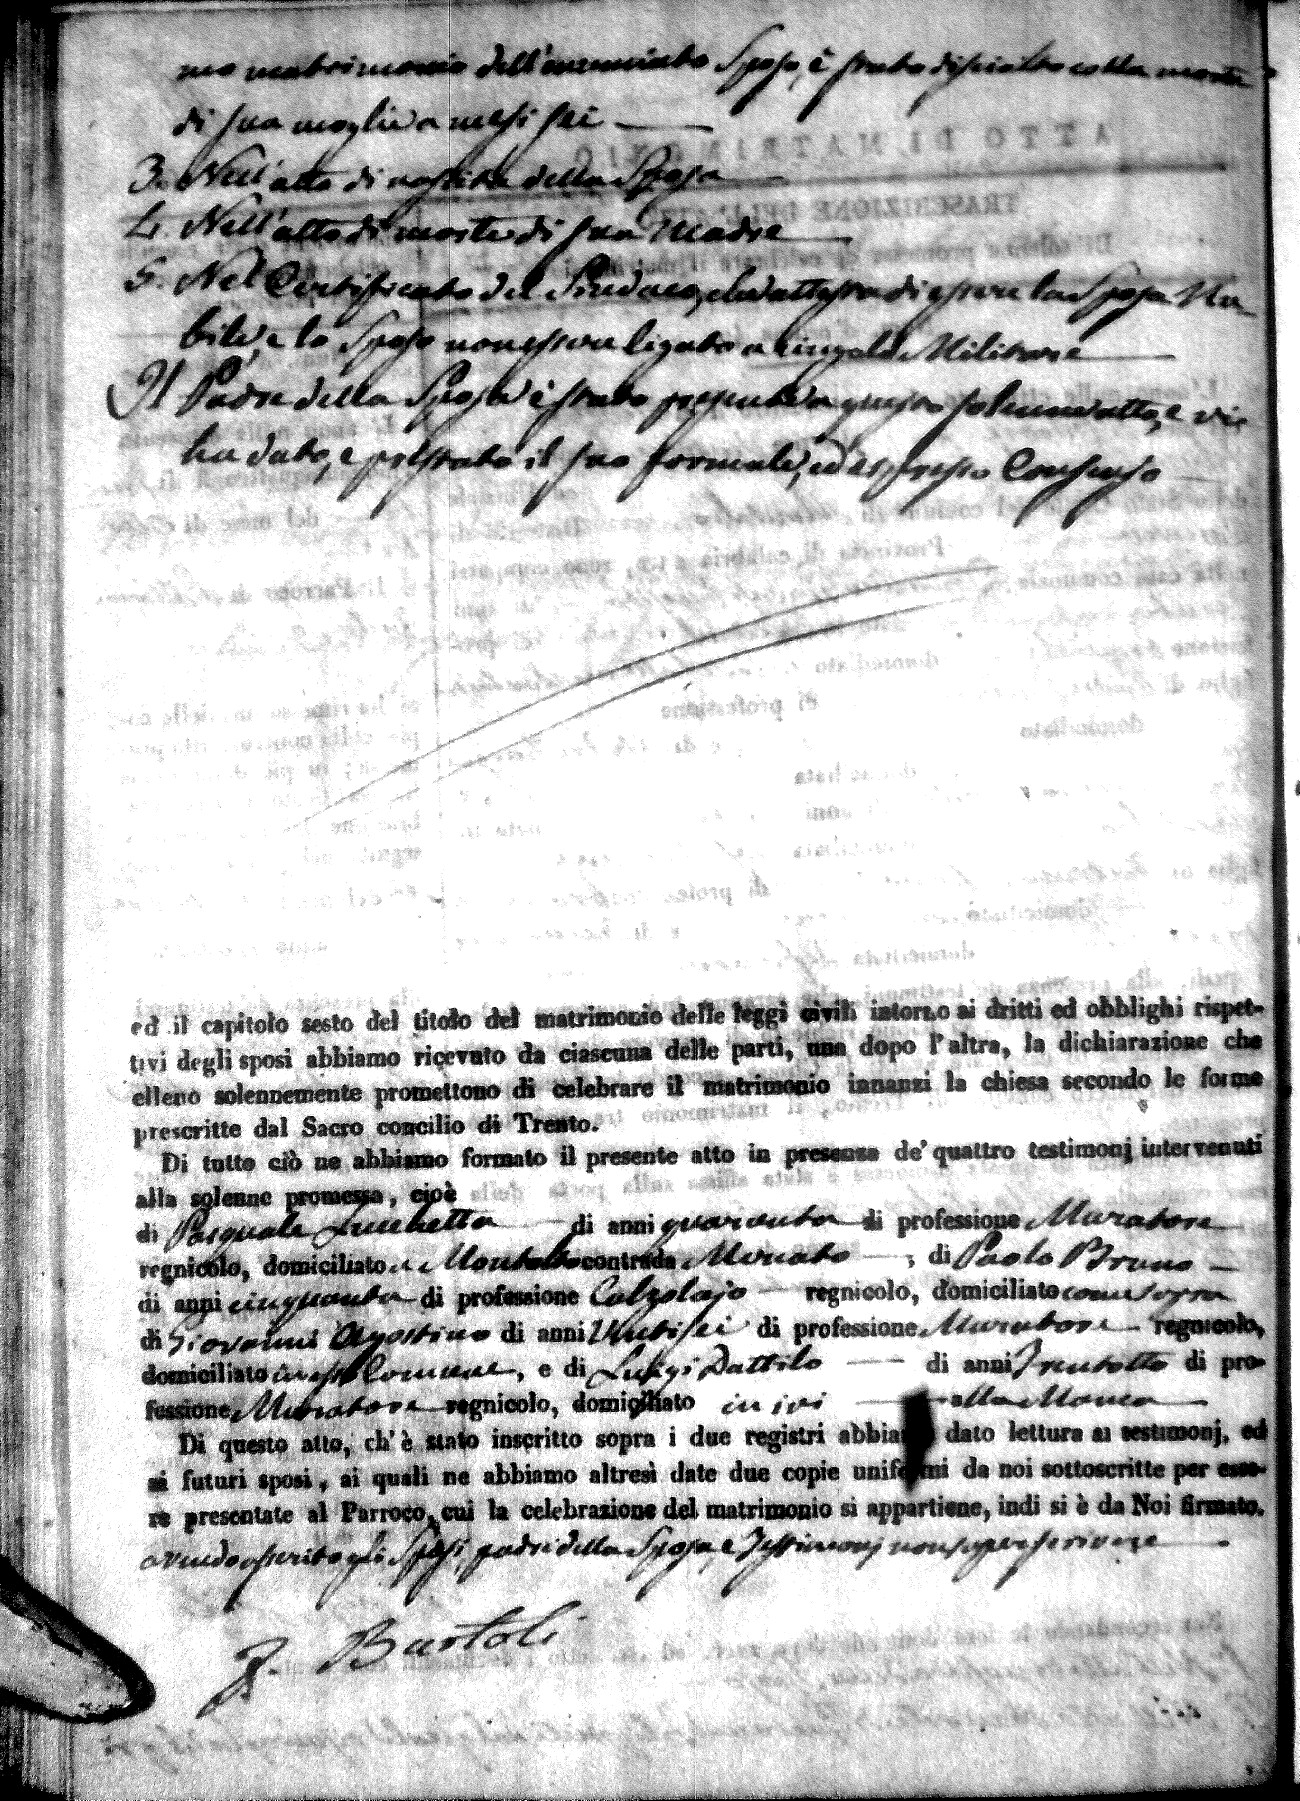 mo matrimonio dell'annunciato Sposo, è stato disciolto colla morte
di sua moglie a mesi sei
3. Nell'atto di nascita della Sposa
4. Nell'atto di morte di sua Madre
5. Nel Certificato del Sindaco, che attesta di essere la Sposa Nu-
bile, e lo Sposo non essere ligato a cingolo Militare
Il Padre della Sposa è stato presente a questo solenne atto, e vi
ha dato, e prestato il suo formale, ed espresso Consenso
ed il capitolo sesto del titolo del matrimonio delle leggi civili intorno ai dritti ed obblighi rispet-
tivi degli sposi abbiamo ricevuto da ciascuna delle parti, una dopo l'altra, la dichiarazione che
elleno solennemente promettono di celebrare il matrimonio innanzi la chiesa secondo le forme
prescritte dal Sacro concilio di Trento.
Di tutto ciò ne abbiamo formato il presente atto in presenza de' quattro testimonj intervenuti
alla solenne promessa, cioè
di Pasquale Lucchetta di anni quaranta di professione Muratore
regnicolo, domiciliato a Montalto contrada Mercato ; di Paolo Bruno
di anni cinquanta di professione Calzolajo regnicolo, domiciliato come sopra
di Giovanni Agostino di anni Ventisei di professione Muratore regnicolo,
domiciliato in questo Comune, e di Luigi Dattilo di anni Trentotto di pro-
fessione Muratore regnicolo, domiciliato in ivi alla
Di questo atto, ch'è stato inscritto sopra i due registri abbiamo dato lettura ai testimonj, ed
ai futuri sposi, ai quali ne abbiamo altresì date due copie uniformi da noi sottoscritte per esse-
re presentate al Parroco, cui la celebrazione del matrimonio si appartiene, indi si è da Noi firmato.
avendo asserito gli Sposi, padre della Sposa, e Testimonj non saper scrivere
Bartoli